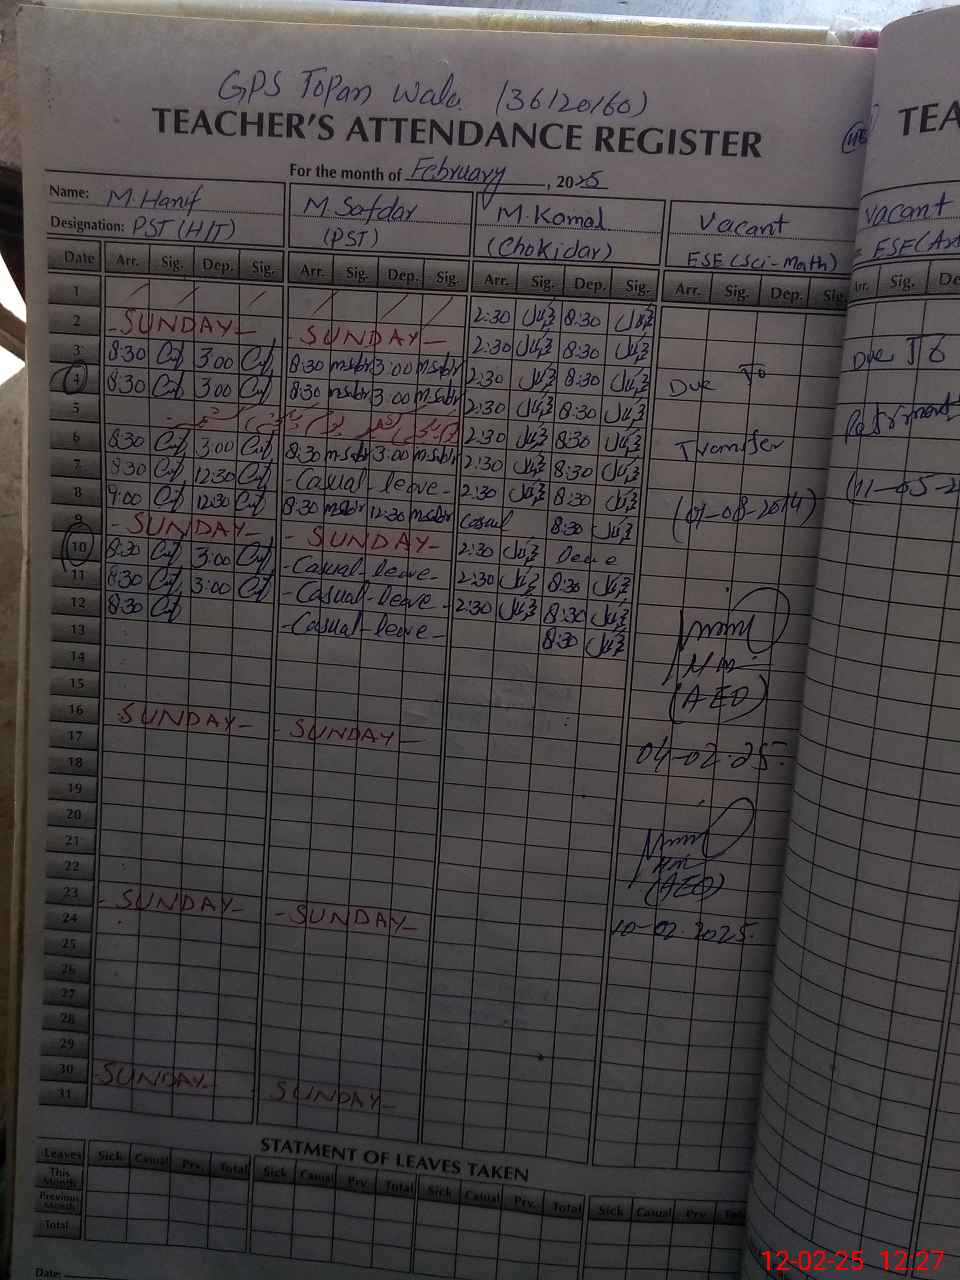 GPS Topan Wala (36120160)
TEACHER'S ATTENDANCE REGISTER
TEA
For the month of February, 2025
Name: M. Hanif M. Safdar M. Kamal Vacant Vacant
Designation: PST (HIT) (PST) (Chokidar) ESE (Sci-Math) ESE (
Date Arr. Sig. Dep. Sig. Arr. Sig. Dep. Sig. Arr. Sig. Dep. Sig. Arr. Sig. Dep. Sig. Arr. Sig. De
1 2:30 8:30
2 - SUNDAY - - SUNDAY - 2:30 8:30
3 8:30 3:00 8:30 3:00 2:30 8:30 Due To Due To
4 8:30 3:00 8:30 3:00 2:30 8:30
5 2:30 8:30 Transfer
6 8:30 3:00 8:30 3:00 2:30 8:30
7 8:30 12:30 - Casual - leave - 2:30 8:30 (01-08-2014) (11-05-2
8 9:00 12:30 8:30 12:30 Casual 8:30
9 - SUNDAY - - SUNDAY - 2:30 leave
10 8:30 3:00 - Casual - leave - 2:30 8:30
11 8:30 3:00 - Casual - leave - 2:30 8:30
12 8:30 - Casual - leave - 8:30
13
14 (AEO)
15
16 - SUNDAY - - SUNDAY - 04-02-25
17
18
19
20
21
22 (AEO)
23 - SUNDAY - - SUNDAY - 10-02-2025
24
25
26
27
28
29
30 - SUNDAY - - SUNDAY -
31
STATMENT OF LEAVES TAKEN
Leaves Sick Casual Prv. Total Sick Casual Prv. Total Sick Casual Prv. Total Sick Casual Prv. Tot
This Month
Previous Month
Total
Date:
12-02-25 12:27